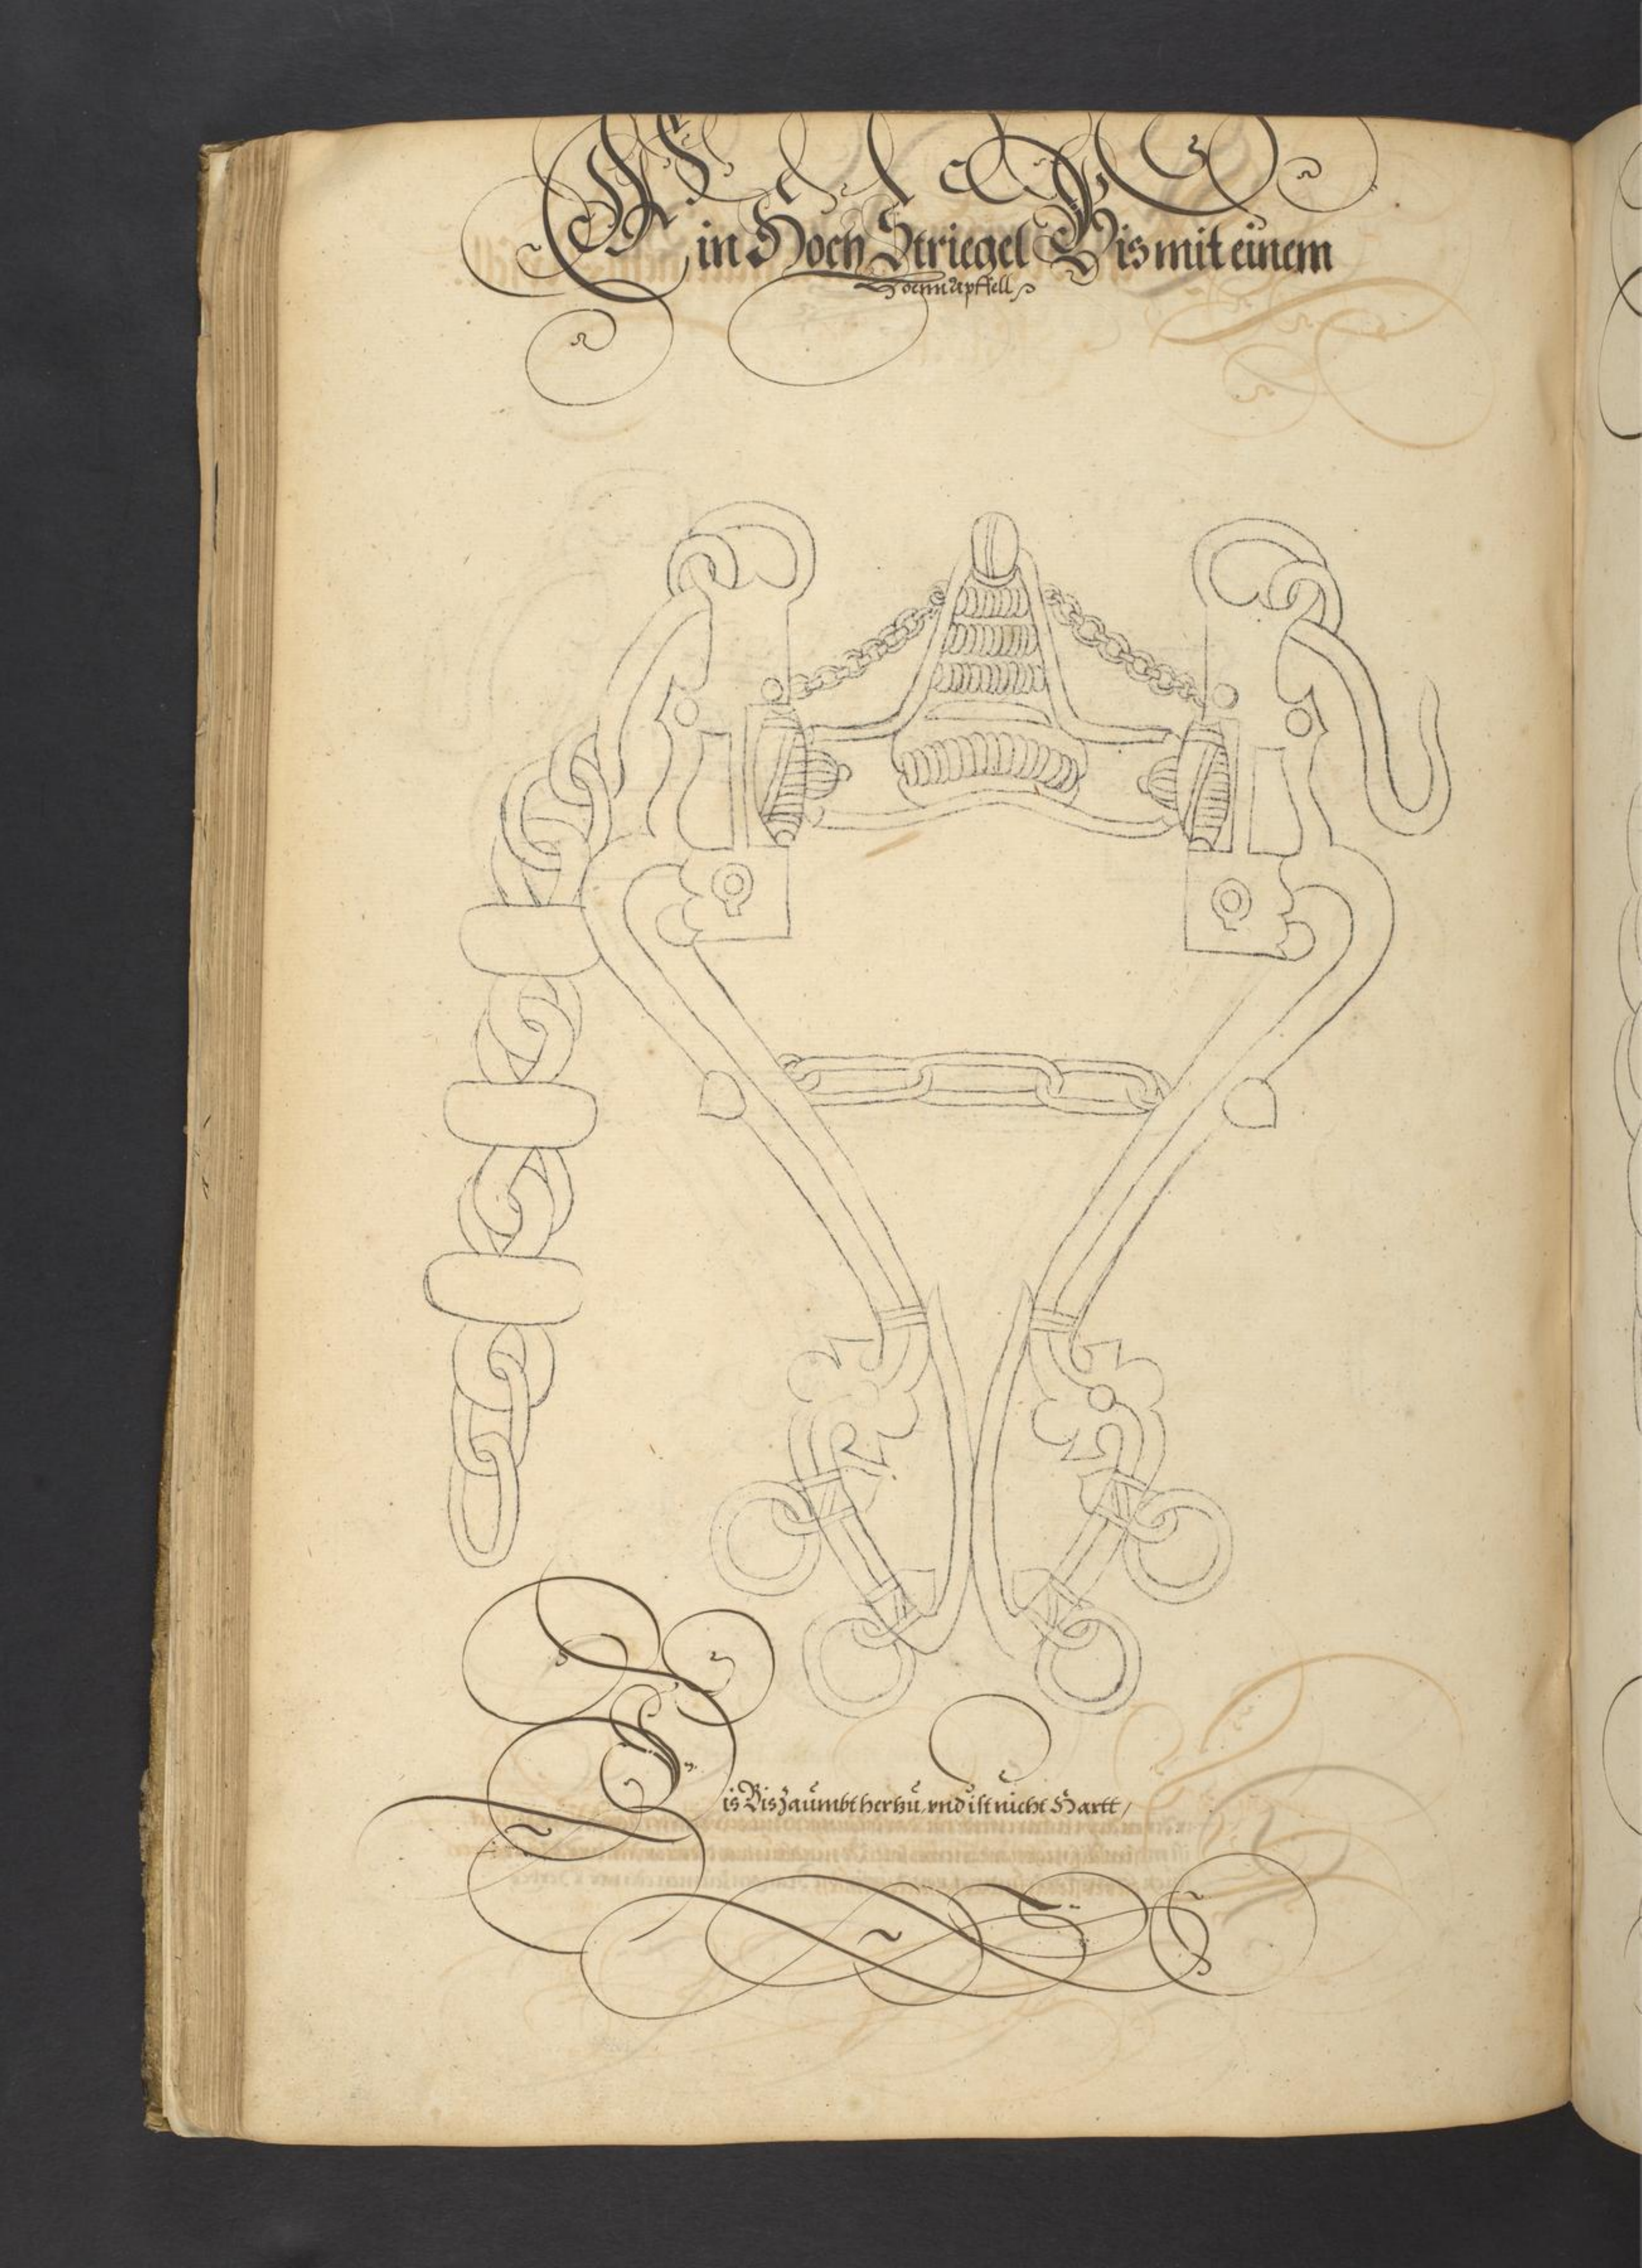 Ein Hoch Striegel Bis mit einem
is Bis zaumbt herbu, vnd ist nicht Hartt /